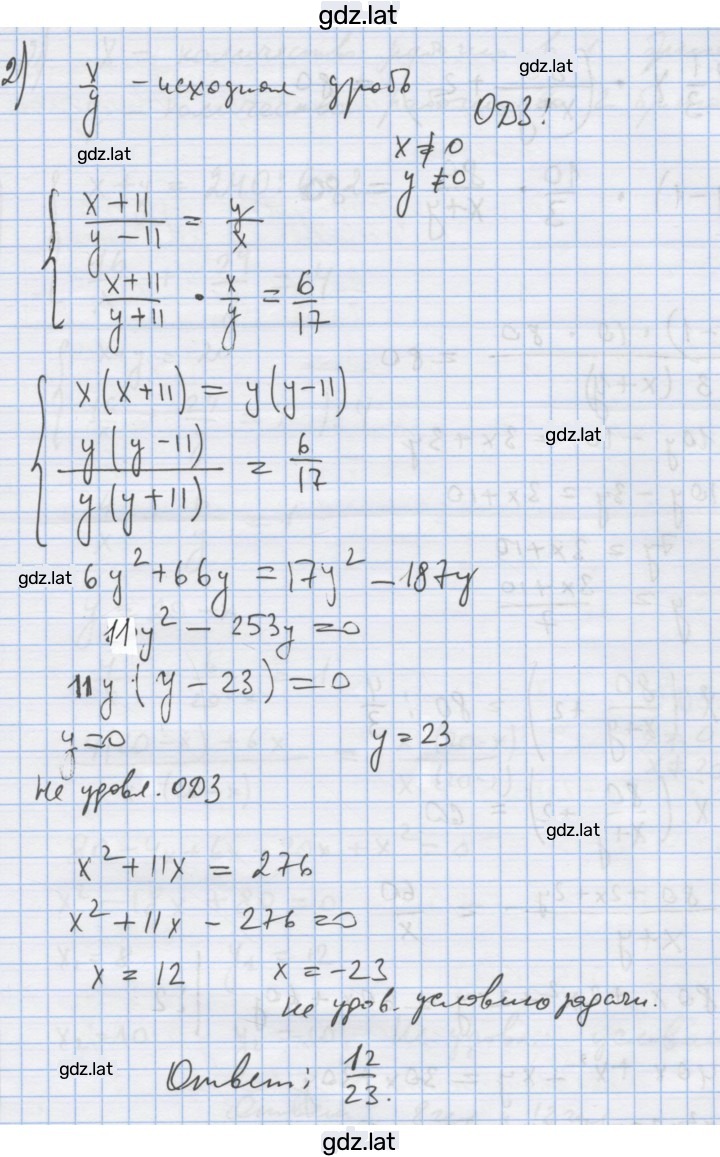 gdz.lat
2) x/y - исходная дробь
gdz.lat
ОДЗ!
gdz.lat
x ≠ 0
y ≠ 0
{ (x+11)/(y-11) = y/x
(x+11)/(y+11) · x/y = 6/17
{ x(x+11) = y(y-11)
gdz.lat
y(y-11)/y(y+11) = 6/17
gdz.lat
6y² + 66y = 17y² - 187y
11y² - 253y = 0
11y(y - 23) = 0
y = 0 y = 23
не удовл. ОДЗ
gdz.lat
x² + 11x = 276
x² + 11x - 276 = 0
x = 12 x = -23
не удов. условию задачи.
gdz.lat
Ответ: 12/23.
gdz.lat